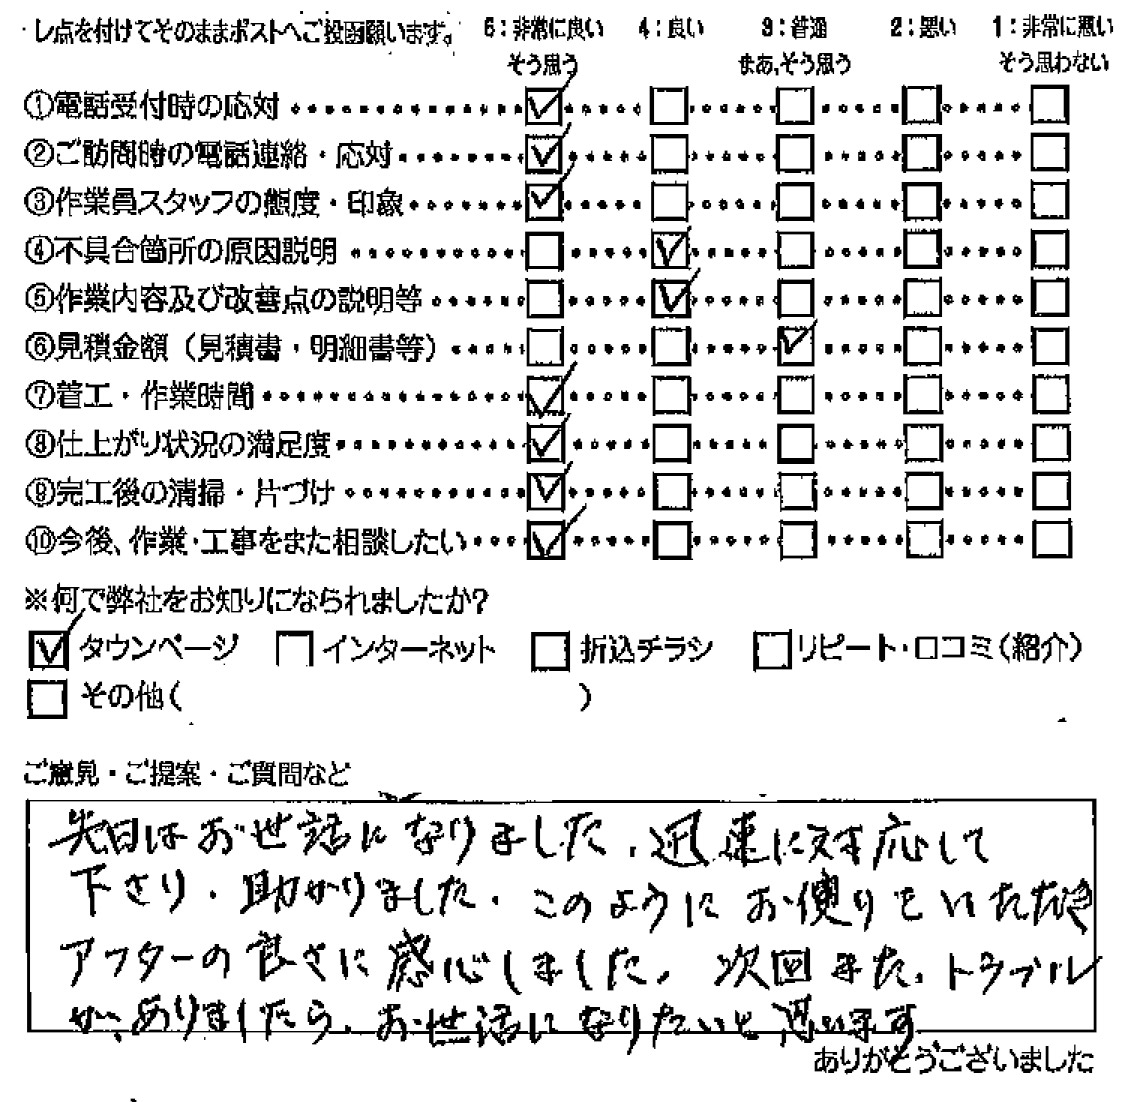 レ点を付けてそのままポストへご投函願います。 5：非常に良い 4：良い 3：普通 2：悪い 1：非常に悪い
そう思う まあ、そう思う そう思わない
①電話受付時の応対
②ご訪問時の電話連絡・応対
③作業員スタッフの態度・印象
④不具合箇所の原因説明
⑤作業内容及び改善点の説明等
⑥見積金額（見積書・明細書等）
⑦着工・作業時間
⑧仕上がり状況の満足度
⑨完工後の清掃・片づけ
⑩今後、作業・工事をまた相談したい
※何で弊社をお知りになられましたか？
タウンページ インターネット 折込チラシ リピート・口コミ（紹介）
その他（ ）
ご意見・ご提案・ご質問など
先日はお世話になりました、迅速に対応して
下さり、助かりました。このようにお便りもいただき
アフターの良さに感心しました。次回また、トラブル
が、ありましたら、お世話になりたいと思います
ありがとうございました